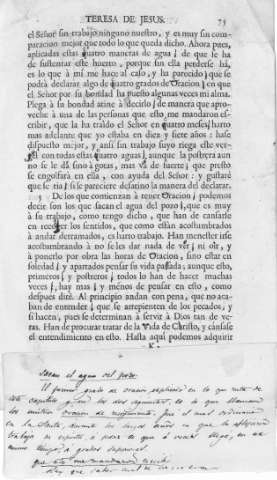 TERESA DE JESUS. 75
el Señor sin trabajo ninguno nuestro, y es muy sin com-
paracion mejor que todo lo que queda dicho. Ahora pues,
aplicadas estas quatro maneras de agua, de que se ha
de sustentar este huerto, porque sin ella perderse há,
es lo que á mí me hace al caso, y ha parecido, que se
podrá declarar algo de quatro grados de Oracion, en que
el Señor por su bondad ha puesto algunas veces mi alma.
Plega á su bondad atine á decirlo, de manera que apro-
veche á una de las personas que esto me mandaron es-
cribir, que la ha traído el Señor en quatro meses, harto
mas adelante que yo estaba en diez y siete años: hase
dispuesto mejor, y ansí sin trabajo suyo riega este ver-
gel con todas estas quatro aguas, aunque la postrera aun
no se le dá sino á gotas, mas vá de suerte, que presto
se engolfará en ella, con ayuda del Señor: y gustaré
que se ria, si le pareciere desatino la manera del declarar.
De los que comienzan á tener Oracion, podemos
decir son los que sacan el agua del pozo, que es muy
á su trabajo, como tengo dicho, que han de cansarse
en recoger los sentidos, que como están acostumbrados
á andar derramados, es harto trabajo. Han menester irse
acostumbrando á no se les dar nada de ver, ni oír, y
á ponerlo por obra las horas de Oracion, sino estar en
soledad, y apartados pensar su vida pasada: aunque esto,
primeros, y postreros, todos lo han de hacer muchas
veces, hay mas, y ménos de pensar en esto, como
despues diré. Al principio andan con pena, que no aca-
ban de entender, que se arrepienten de los pecados, y
si hacen, pues se determinan á servir á Dios tan de ve-
ras. Han de procurar tratar de la Vida de Christo, y cánsase
el entendimiento en esto. Hasta aquí podemos adquirir
K
Sacan el agua del pozo.
El primer grado de oracion explicado en lo que resta de
este capitulo y los dos siguientes, es lo que llaman
los misticos oracion de
en la Santa, durante los largos años en que la
trabajo